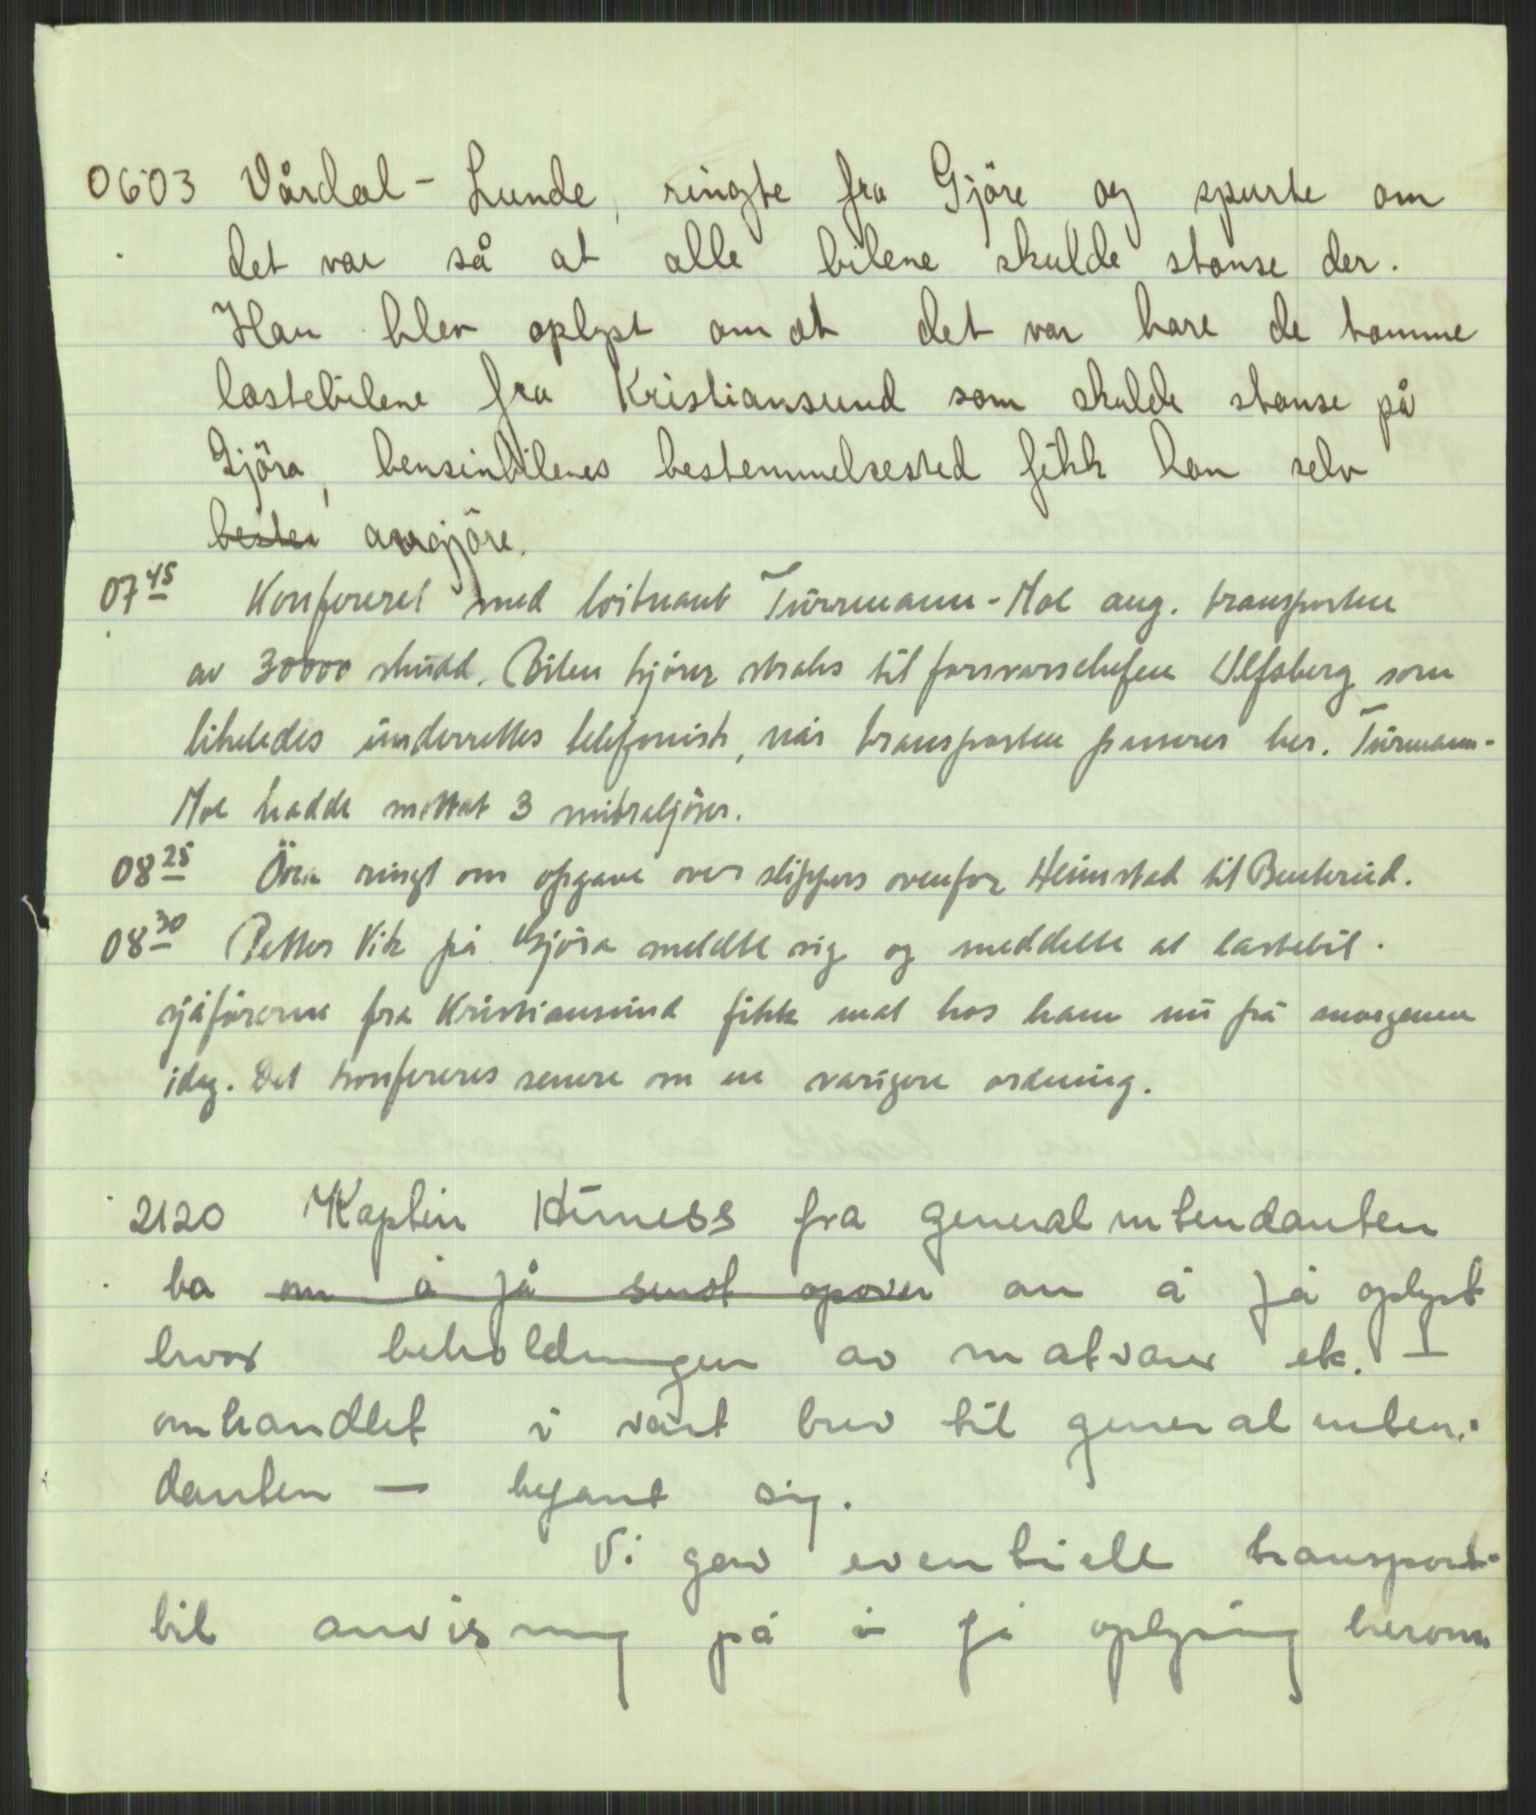 0603 Vårdal - Lunde, ringte fra Gjöre og spurte om
det var så at alle bilene skulde stanse der.
Han blev oplyst om at det var bare de tomme
lastebilene fra Kristiansund som skulde stanse på
Gjöra, bensinbilenes bestemmelsested fikk han selv
besten avgjöre.
07 45 Konfereret med löitnant Türrmann-Moe ang. transporten
av 30000 skudd. Bilen kjörer straks til forsvarschefen Ulfsberg som
likeledes underrettes telefonisk, når transporten passerer her. Türmann-
Moe hadde mottat 3 mitraljöser.
08 25 Öra ringt om opgave over slippers ovenfor Heimstad til
08 30 Petter Vik på Gjöra meldte sig og meddelte at lastebil-
sjåförerne fra Kristiansund fikk mat hos ham nu på morgenen
idag. Det konfereres senere om en varigere ordning.
2120 Kaptein fra generalintendanten
ba om å få sendt opover om å få oplyst
hvor beholdningen av matvarer etc. I
omhandlet i vårt brev til generalinten-
danten — befant sig.
Vi gav eventuell transport-
bil anvisning på å få oplysning herom